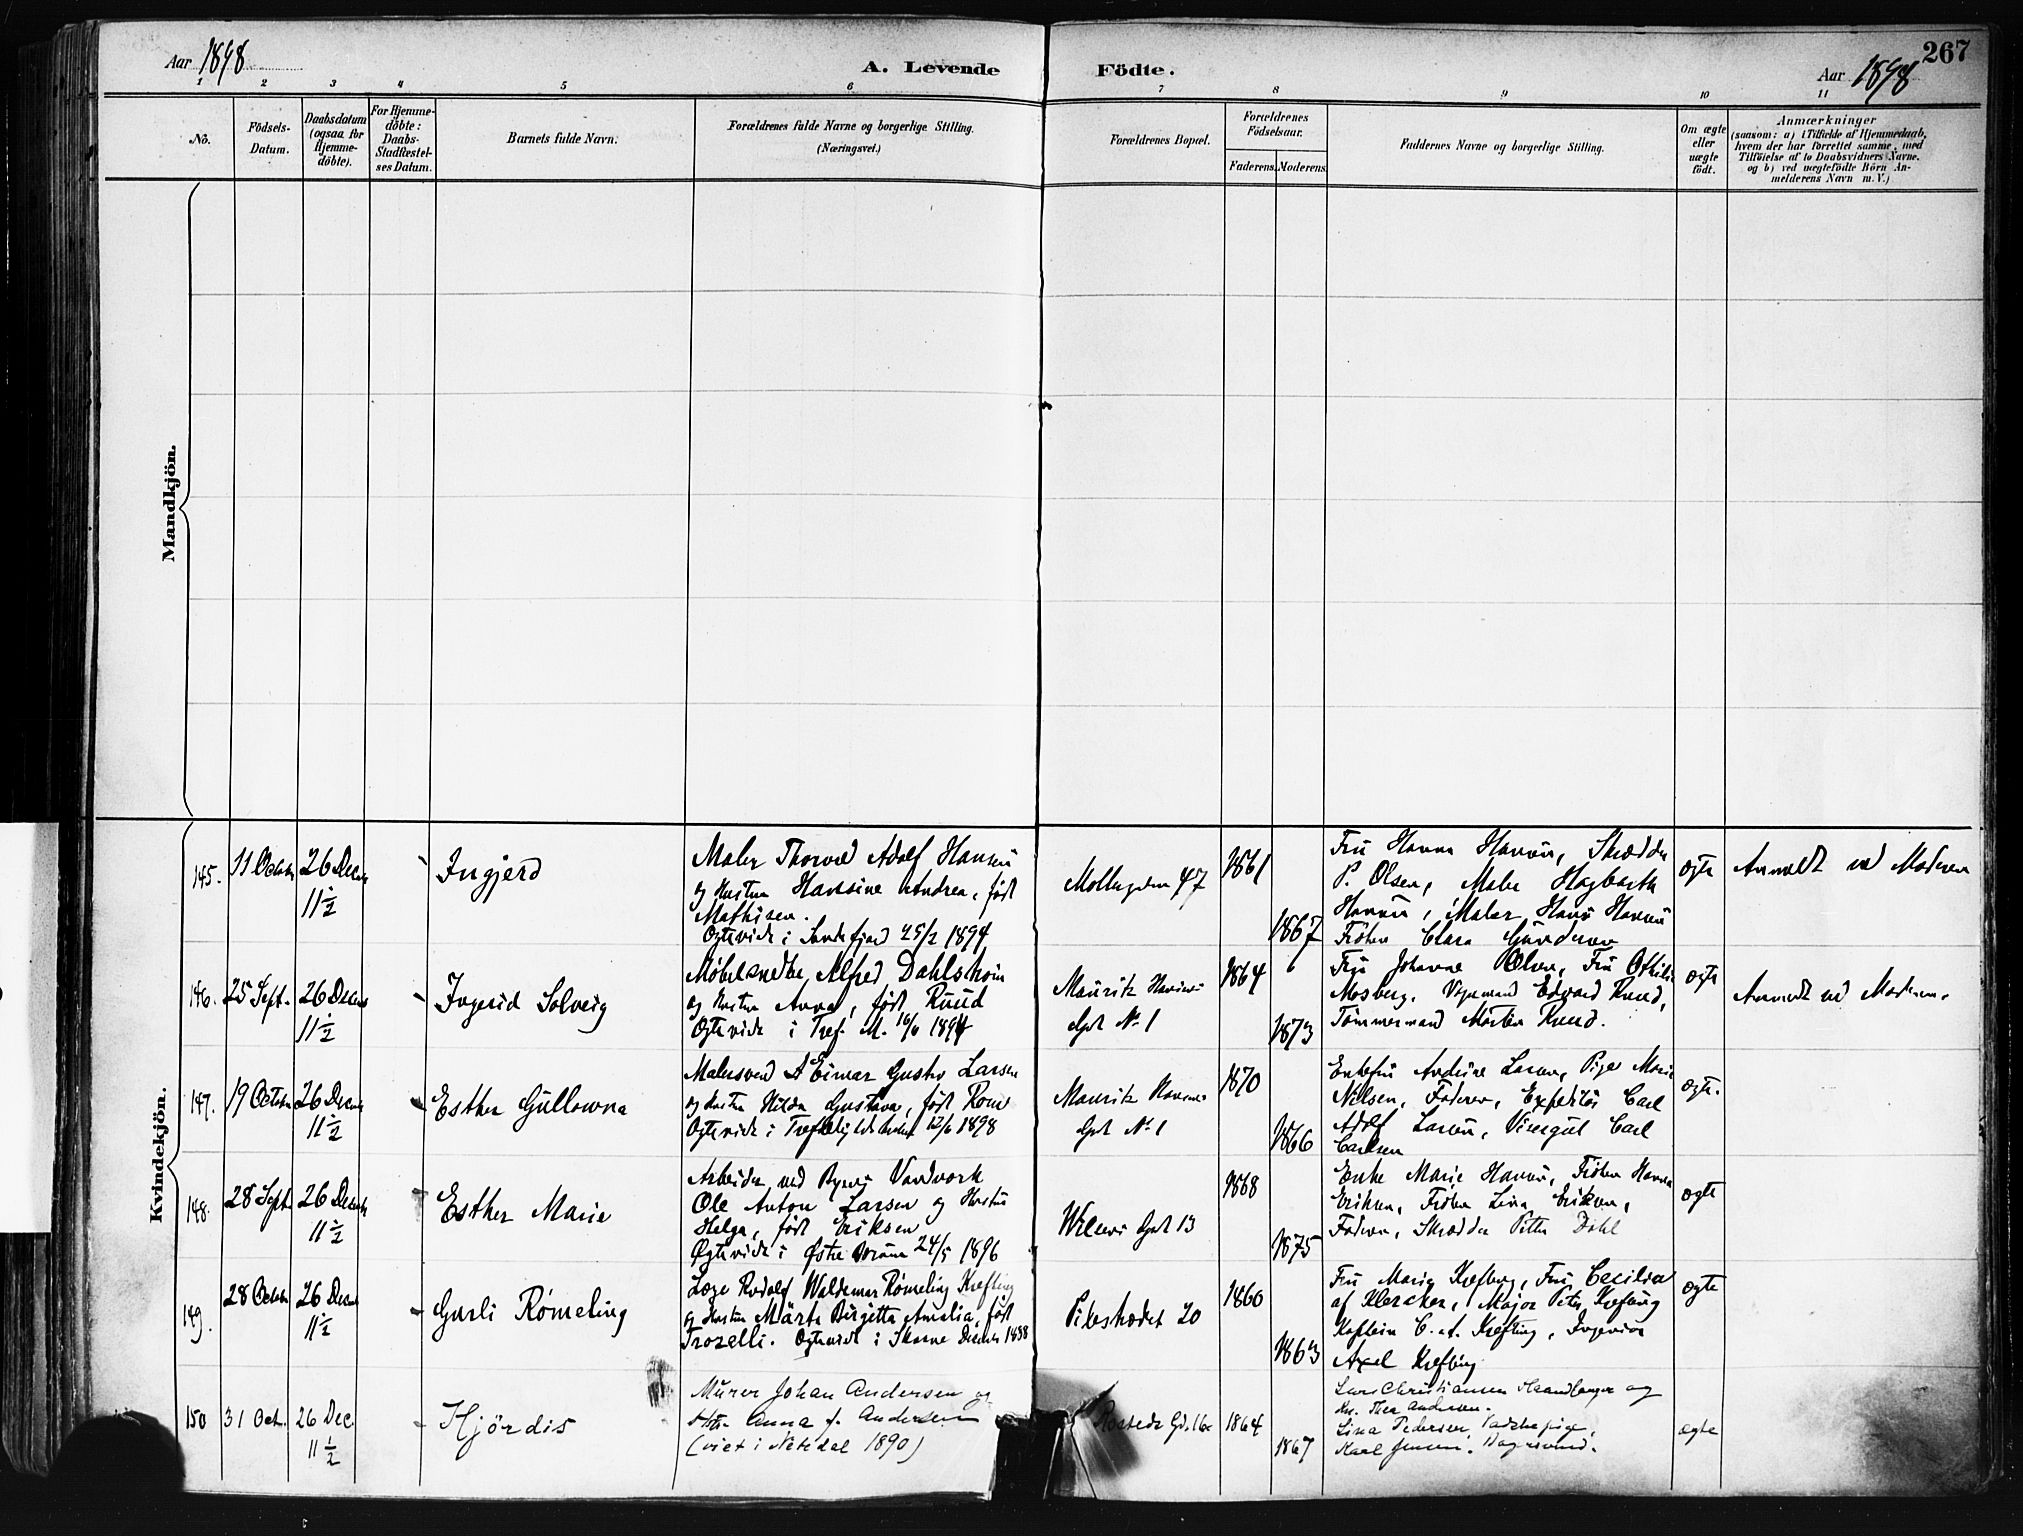 Aar 1898
A. Levende
Födte.
Aar 1898
267
1 2 3 4 5 6 7 8 9 10 11
No.
Födsels-
Datum.
Daabsdatum
(ogsaa for
Hjemme-
döbte).
For Hjemme-
döbte:
Daabs-
Stadfæstel-
ses Datum.
Barnets fulde Navn.
Forældrenes fulde Navne og borgerlige Stilling.
(Næringsvei.)
Forældrenes Bopæl.
Forældrenes
Födselsaar.
Faderens.
Moderens.
Faddernes Navne og borgerlige Stilling.
Om ægte
eller
uægte
födt.
Anmærkninger
(saasom: a) i Tilfælde af Hjemmedaab,
hvem der har forrettet samme, med
Tilföielse af to Daabsvidners Navne.
og b) ved uægtefödte Börn An-
melderens Navn m. V.)
Mandkjön.
Kvindekjön.
145.
11 Octobr
26 Decbr
11 1/2
Ingjerd
Maler Thorvald Adolf Hansen
og Hustru Hansine Andrea, født
Mathisen.
Ogteviede i Sandefjord 25/2 1894
Møllegaden 47
1861
1867
Fru Hanna Hansen, Skrædder
P. Olsen, Maler Hagbarth
Hansen, Maler Hans Hansen
Frøken Clara Gundersen
ægte
Anmeldt ved Moderen
146.
25 Sept.
26 Decbr
11 1/2
Ingerid Solveig
Møbelsnedker Alfred Dahlsheim
og Hustru Anna, født Ruud
Ogteviede i Tref. M. 16/6 1894
Mauritz Hansens
Gd. No 1
1864
1873
Fru Johanne Olsen, Fru Othilie
Mosberg, Vognmand Edvard Ruud,
Tømmermand Morten Ruud.
ægte
Anmeldt ved Moderen.
147.
19 Octobr
26 Decbr
11 1/2
Esther Gullowna
Malersvend A Eimar Gustav Larsen
og Hustru Hilda Gustava, født Rom
Ogteviede i 12/6 1898
Mauritz Hansens
Gd. No 1
1870
1866
Enkefru Andrine Larsen, Pige Marie
Nilsen, Faderen, Expeditør Carl
Adolf Larsen, Visergut Carl
Carlsen
ægte.
148.
28 Sept
26 Decbr
11 1/2
Esther Marie
Arbeider ved Byens Vandværk
Ole Anton Larsen og Hustru
Helga, født Eriksen
Ogteviede i Østre 24/5 1896
Wilses Gd. 13
1868
1875
Enke Marie Hansen, Frøken Hanna
Eriksen, Frøken Lina Eriksen,
Faderen, Skrædder Petter Dahl
ægte
149.
28 Octobr
26 Decbr
11 1/2
Gurli Rømeling
Læge Rudolf Waldemar Rømeling Krefting
og Hustru Märta Birgitta Amalia, født
Trozelli. Ogteviede i Skaane Decbr 1888
Pilestrædet 20
1860
1863
Fru Maria Krefting, Fru Cecilia
af Klercker, Major Peter Krefting
Kaptein C. A. Krefting, Ingeniør
Axel Krefting
ægte
150
31 Oct.
26 Dec.
11 1/2
Hjördis
Murer Johan Andersen og
Hstr. Anna f. Andersen
(viet i Nitedal 1890)
Rosteds Gd. 16
1864
1867
Lars Christiansen Haandlanger og
Kn. Thea Andersen.
Lina Pedersen,
Karl Jensen,
ægte